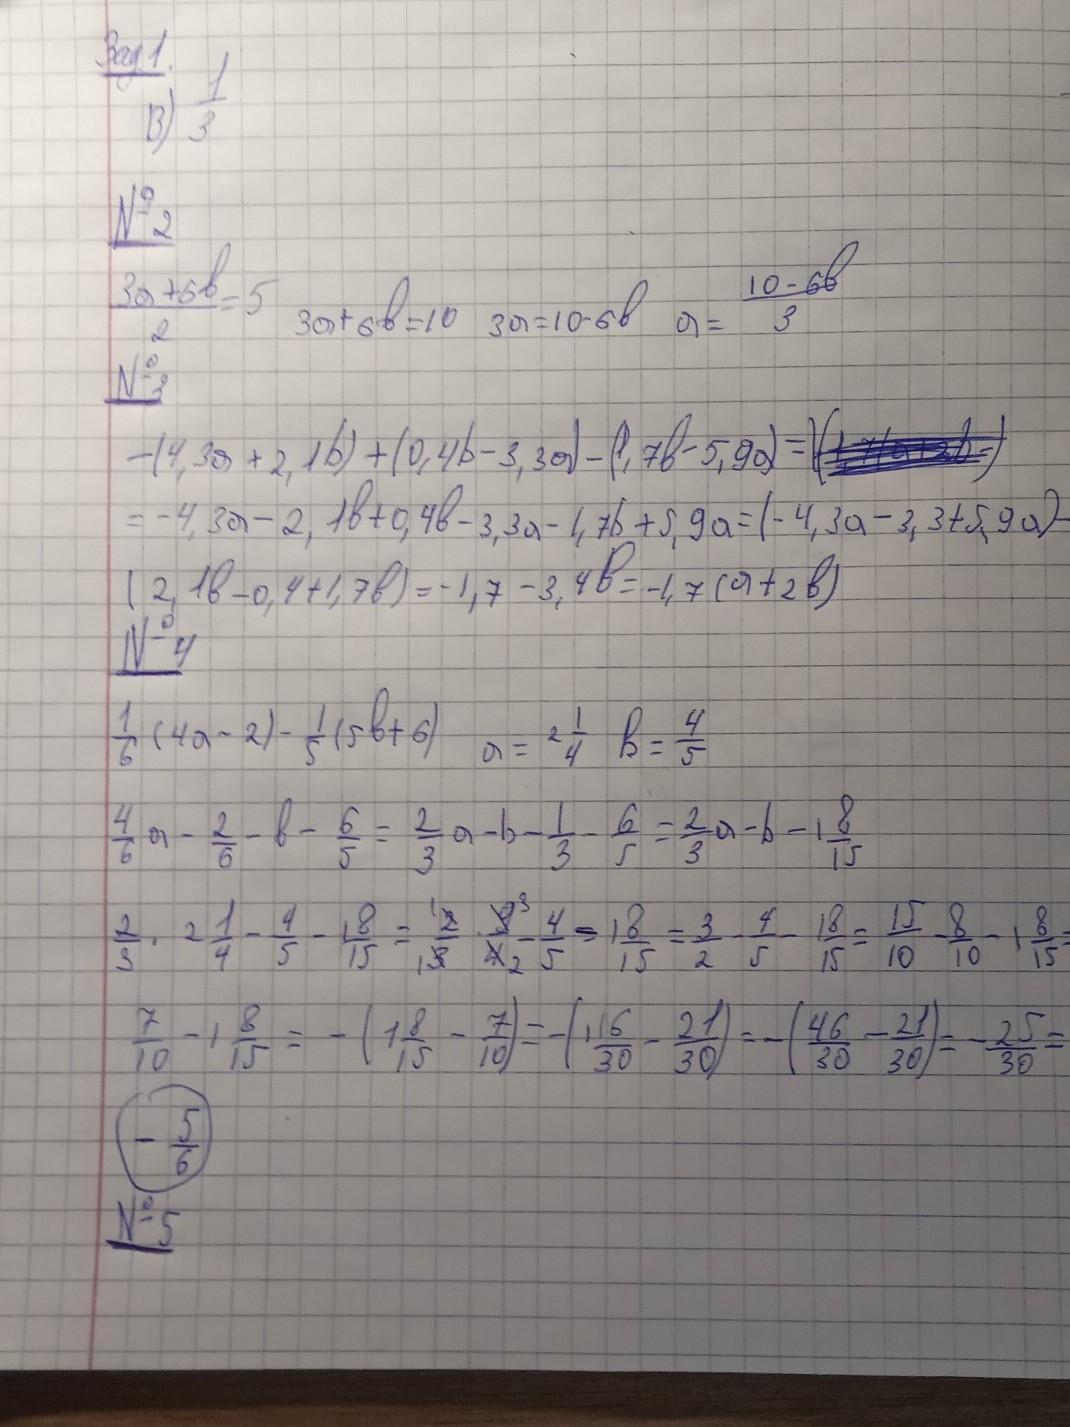 Зад 1.
В) 1/3
№2
(3a+6b)/2=5 3a+6b=10 3a=10-6b a=(10-6b)/3
№3
-(4,3a+2,1b)+(0,4b-3,3a)-(1,7b-5,9a)=
=-4,3a-2,1b+0,4b-3,3a-1,7b+5,9a=(-4,3a-3,3+5,9a)-
(2,1b-0,4+1,7b)=-1,7-3,4b=-1,7(a+2b)
№4
1/6(4a-2)-1/5(5b+6) a=2 1/4 b=4/5
4/6 a-2/6-b-6/5=2/3 a-b-1/3-6/5=2/3 a-b-1 8/15
2/3·2 1/4-4/5-1 8/15=2/3·9/4-4/5-1 8/15=3/2-4/5-1 8/15=15/10-8/10-1 8/15=
7/10-1 8/15=-(1 8/15-7/10)=-(1 16/30-21/30)=-(46/30-21/30)=-25/30=
-5/6
№5